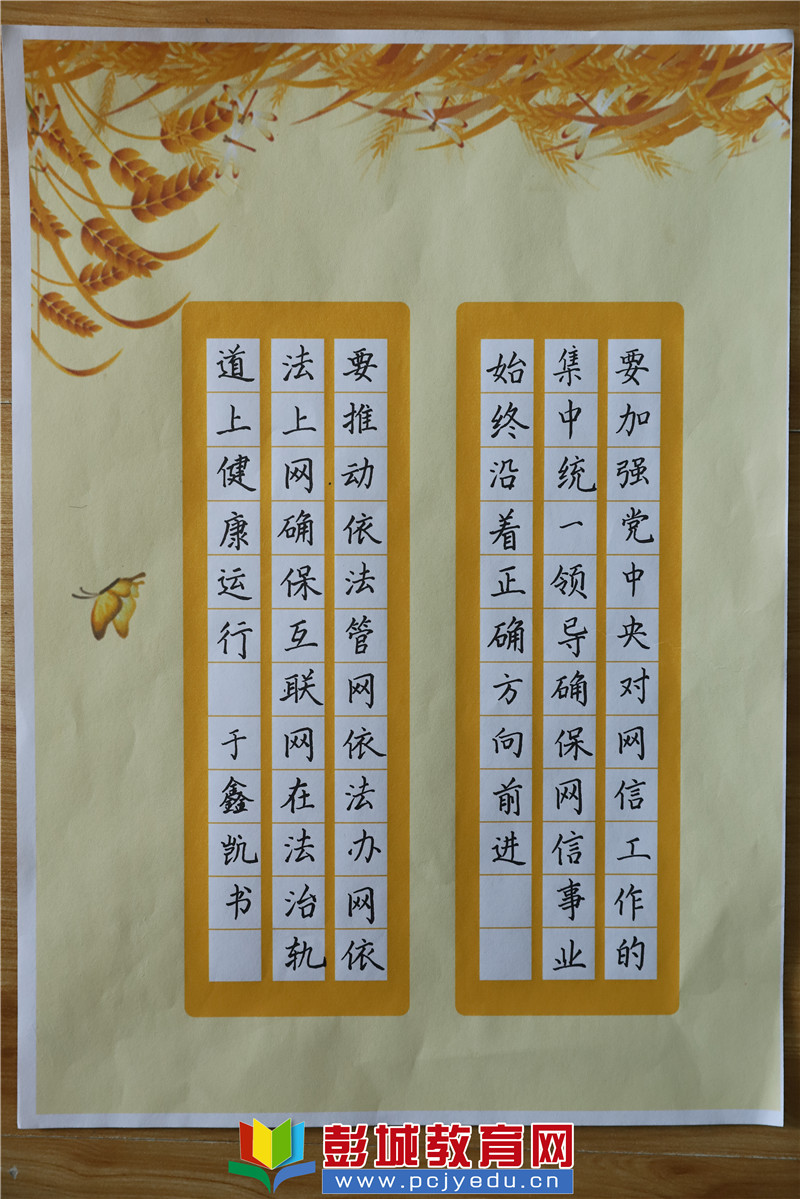 要加强党中央对网信工作的
集中统一领导确保网信事业
始终沿着正确方向前进
要推动依法管网依法办网依
法上网确保互联网在法治轨
道上健康运行 于鑫凯书
彭城教育网
www.pcjyedu.cn